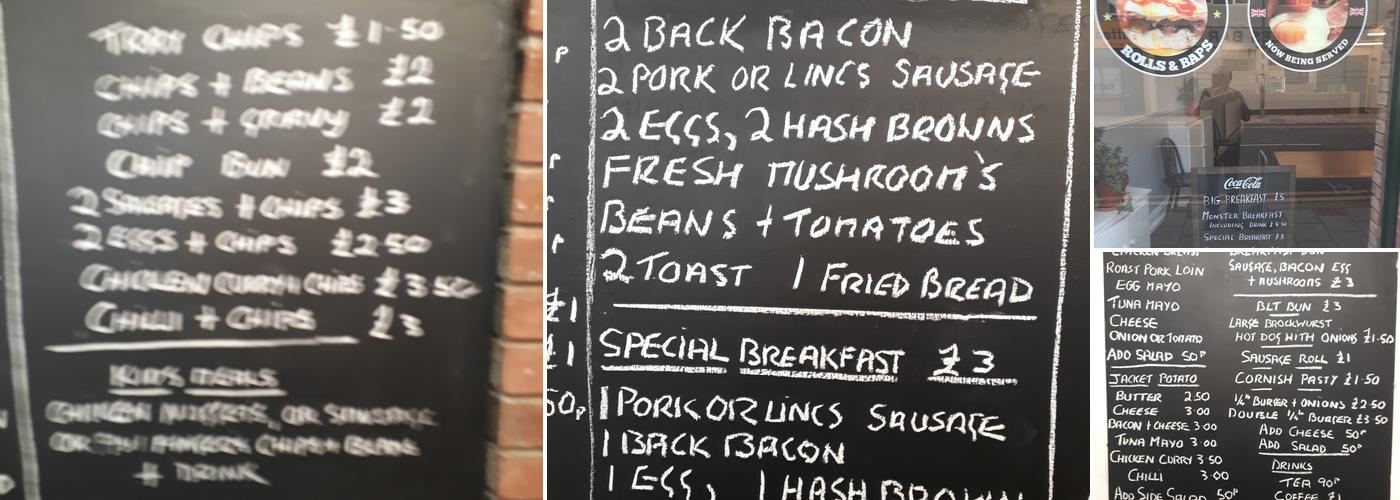 TRAY CHIPS £1·50
CHIPS + BEANS £2
CHIPS + GRAVY £2
CHIP BUN £2
2 SAUSAGES + CHIPS £3
2 EGGS + CHIPS £2·50
CHICKEN CURRY + CHIPS £3·50
CHILLI + CHIPS £3
KIDS MEALS
CHICKEN NUGGETS, OR SAUSAGE
OR FISH FINGERS CHIPS + BEANS
+ DRINK
2 BACK BACON
2 PORK OR LINCS SAUSAGE
2 EGGS, 2 HASH BROWNS
FRESH MUSHROOM'S
BEANS + TOMATOES
2 TOAST 1 FRIED BREAD
SPECIAL BREAKFAST £3
1 PORK OR LINCS SAUSAGE
1 BACK BACON
1 EGG, 1 HASH BROWN
P
P
P
£1
£1
50P
ROLLS & BAPS
NOW BEING SERVED
Coca-Cola
BIG BREAKFAST £5
MONSTER BREAKFAST
INCLUDING DRINK £8.50
SPECIAL BREAKFAST £3
CHICKEN BREAST
ROAST PORK LOIN
EGG MAYO
TUNA MAYO
CHEESE
ONION OR TOMATO
ADD SALAD 50P
JACKET POTATO
BUTTER 2.50
CHEESE 3·00
BACON + CHEESE 3·00
TUNA MAYO 3·00
CHICKEN CURRY 3·50
CHILLI 3·00
ADD SIDE SALAD 50P
BREAKFAST BUN
SAUSAGE, BACON EGG
+ MUSHROOMS £3
BLT BUN £3
LARGE BROCKWURST
HOT DOG WITH ONIONS £1·50
SAUSAGE ROLL £1
CORNISH PASTY £1·50
¼" BURGER + ONIONS £2·50
DOUBLE ¼" BURGER £3·50
ADD CHEESE 50P
ADD SALAD 50P
DRINKS
TEA 90P
COFFEE £1